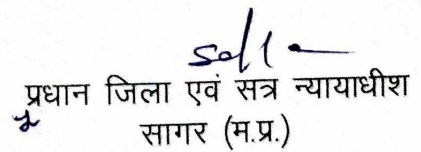 Sd/-
प्रधान जिला एवं सत्र न्यायाधीश
सागर (म.प्र.)